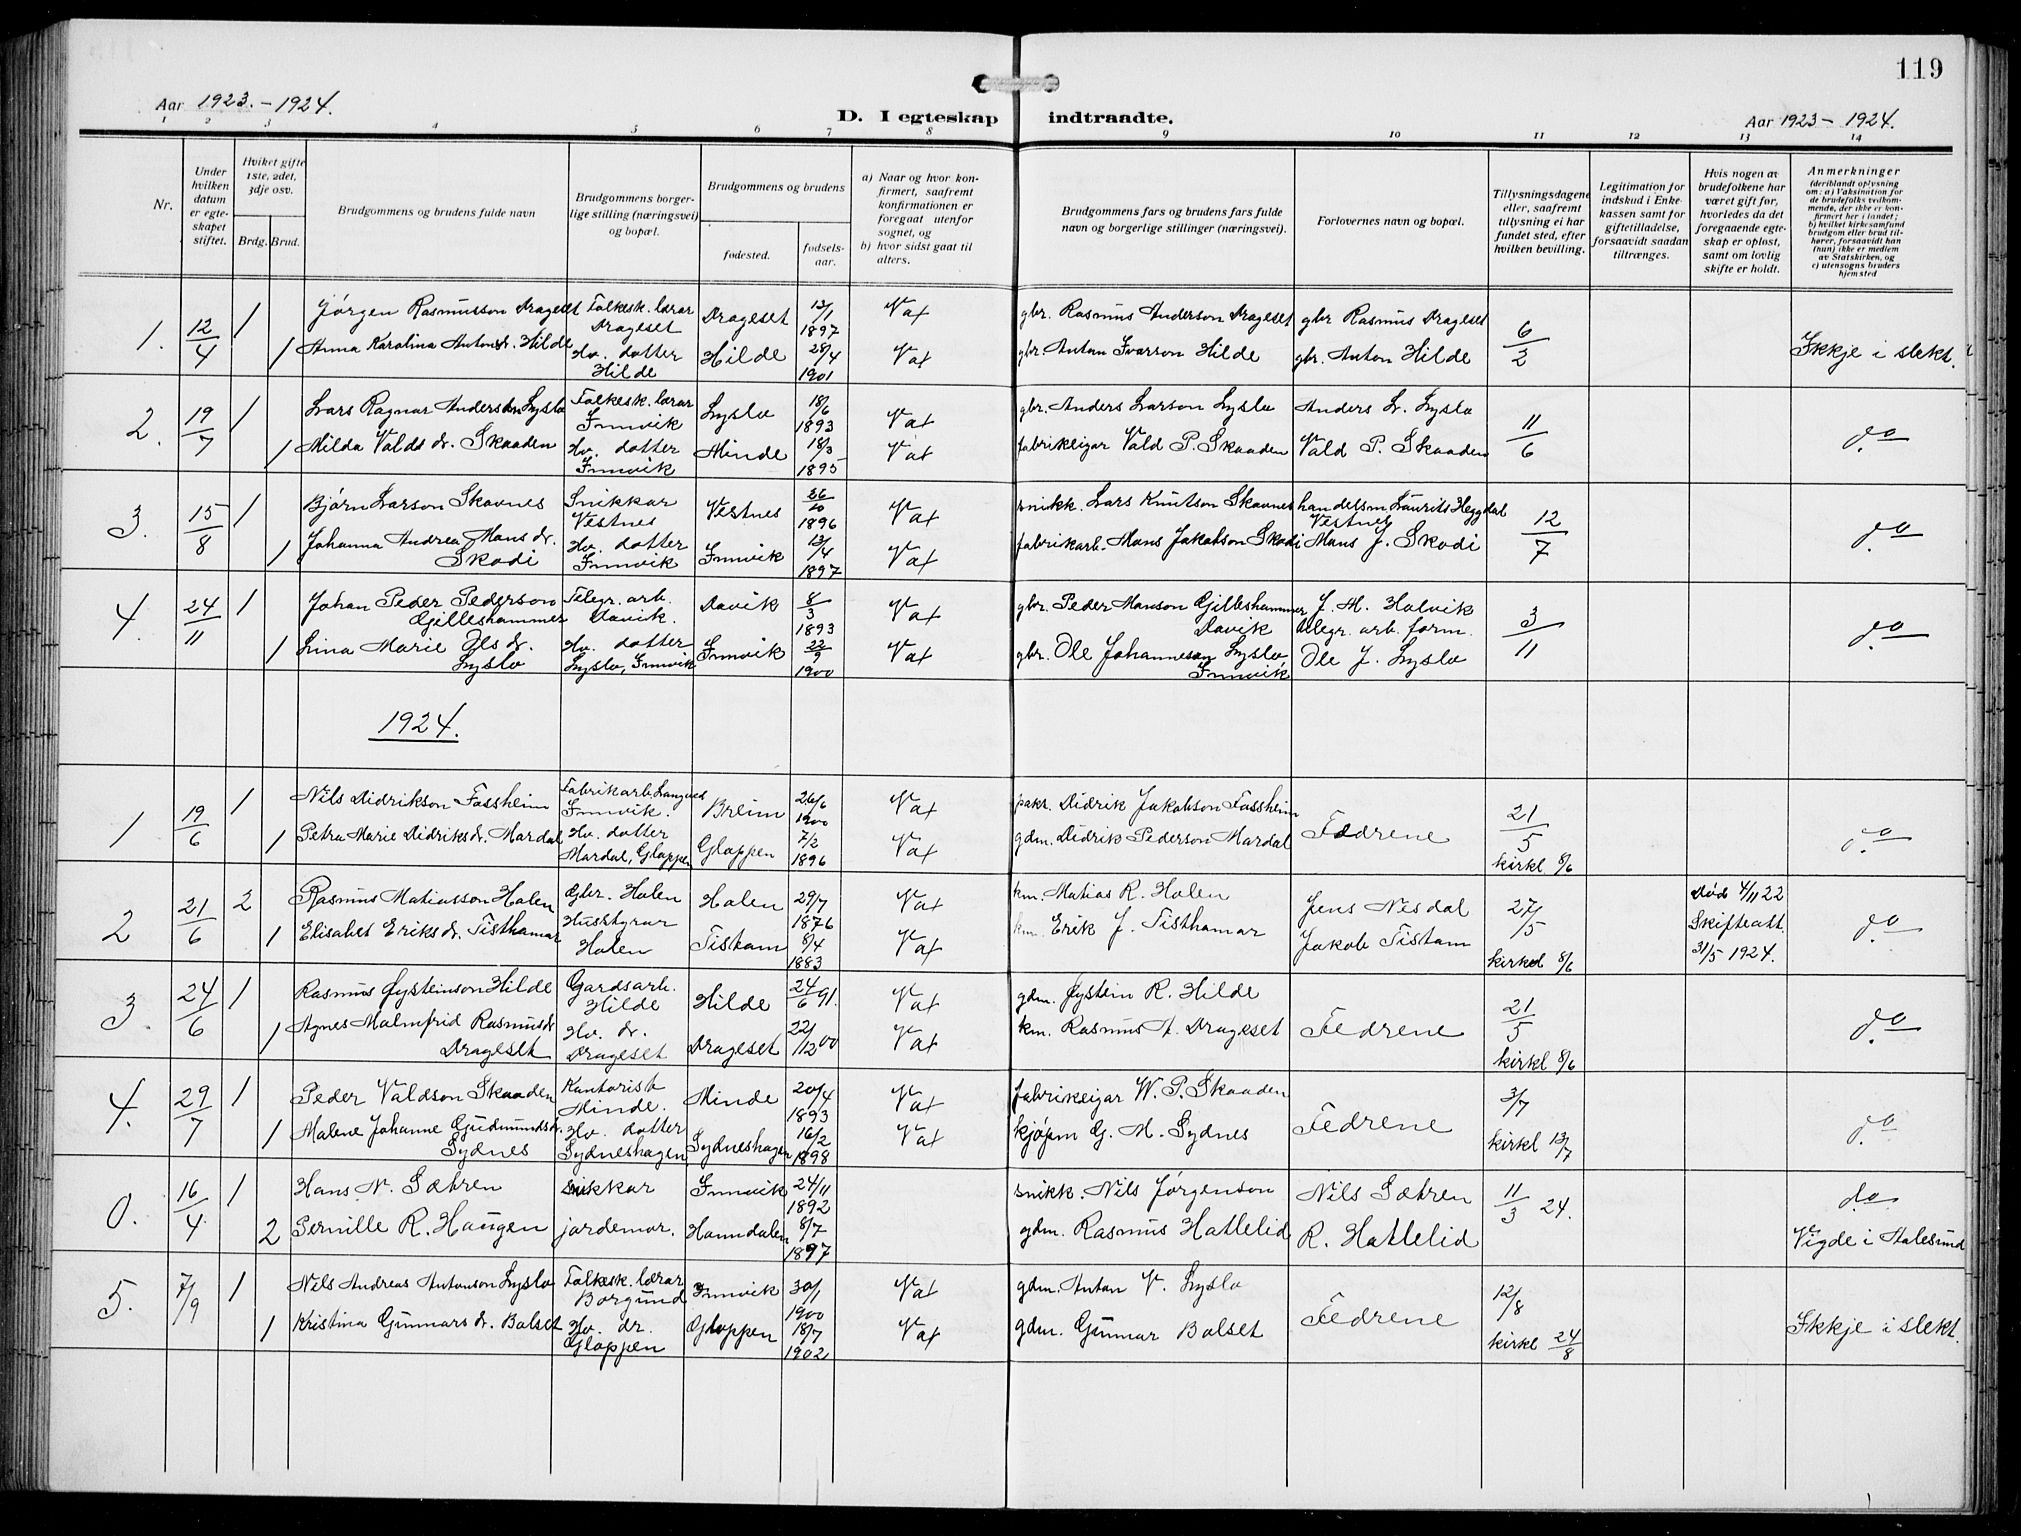 119
Aar 1923. - 1924.
D. I egteskap indtraadte.
Aar 1923 - 1924.
1 2 3 4 5 6 7 8 9 10 11 12 13 14
Nr.
Under hvilken datum er egteskapet stiftet.
Hviket gifte 1ste, 2det, 3dje osv.
Brdg. Brud.
Brudgommens og brudens fulde navn
Brudgommens borgerlige stilling (næringsvei) og bopæl.
Brudgommens og brudens
fødested.
fødselsaar.
a) Naar og hvor konfirmert, saafremt konfirmationen er foregaat utenfor sognet, og
b) hvor sidst gaat til alters.
Brudgommens fars og brudens fars fulde navn og borgerlige stillinger (næringsvei).
Forlovernes navn og bopæl.
Tillysningsdagene eller, saafremt tillysning ei har fundet sted, efter hvilken bevilling.
Legitimation for indskud i Enkekassen samt for giftetilladelse, forsaavidt saadan tiltrænges.
Hvis nogen av brudefolkene har været gift før, hvorledes da det foregaaende egteskap er opløst, samt om lovlig skifte er holdt.
Anmerkninger (deriblandt oplysning om: a) Vaksination for de brudefolks vedkommende, der ikke er konfirmert her i landet; b) hvilket kirkesamfund brudgom eller brud tilhører, forsaavidt han (hun) ikke er medlem av Statskirken, og c) utensogns bruders hjemsted
1. 12/4 1 Jørgen Rasmusson Drageset Folkesk. lærar Drageset Drageset 13/1 1897 Vax gbr. Rasmus Anderson Drageset gbr Rasmus Drageset 6/2 Ikkje i slekt.
1 Anna Karolina Antonsdr. Hilde Hv. dotter Hilde Hilde 28/4 1901 Vax gbr. Anton Ivarson Hilde gbr. Anton Hilde
2. 19/7 1 Lars Ragnar Anderson Lyslo Folkesk. lærar Innvik Lyslo 18/6 1893 Vax gbr. Anders Larson Lyslo Anders L. Lyslo 11/6 do
1 Milda Valds dr. Skaaden Hv. dotter Innvik Minde 18/3 1895 Vax fabrikeigar Vald P. Skaaden Vald P. Skaaden
3. 15/8 1 Bjørn Larson Skavnes Snikkar Vestnes Vestnes 26/10 1896 Vax snikk. Lars Knutson Skavnes handelsm. Laurits Heggdal Vestnes 12/7 do
1 Johanna Andrea Mons dr. Skodi Hv. dotter Innvik Innvik 13/4 1897 Vax fabrikarb. Mons Jakobson Skodi Mons J. Skodi
4. 24/11 1 Johan Peder Pederson Gilleshammer Telegr. arb. Davik. Davik 8/3 1893 Vax gbr. Peder Monson Gilleshammer Davik J. M. Holvik telegr. arb. form. 3/11 do
1 Lina Marie Ols dr. Lyslo Hv. dotter Lyslo, Innvik Innvik 22/9 1900 Vax gbr. Ole Johanneson Lyslo Innvik Ole J. Lyslo
1924.
1 19/6 1 Nils Didrikson Fossheim Fabrikarb. Langvad Innvik. Breim 26/6 1900 Vax pakr. Didrik Jakobson Fossheim Fedrene 21/5 kirkl 8/6 do
1 Petra Marie Didriksdr. Mardal Hv. dotter Mardal, Gloppen Gloppen 7/2 1896 Vax gdm. Didrik Pederson Mardal
2 21/6 2 Rasmus Matiasson Holen Gbr. Holen Holen 29/7 1876 Vax km. Matias R. Holen Jens Nesdal 27/5 kirkel 8/6 Død 4/11 22 Skifteatt. 31/5 1924. do
1 Elisabet Eriks dr. Tisthamar Husstyrar Holen Tistam 8/4 1883 Vax km. Erik J. Tisthamar Jakob Tistam
3. 24/6 1 Rasmus Øysteinson Hilde Gardsarb. Hilde Hilde 24/6 91. Vax gdm. Øystein R. Hilde Fedrene 21/5 kirkl 8/6 do
1 Agnes Malmfrid Rasmusdr Drageset Hv. dr. Drageset Drageset 22/12 00 Vax km. Rasmus A. Drageset
4. 29/7 1 Peder Valdson Skaaden Kontorist Minde. Minde 20/4 1893 Vax fabrikeigar W. P. Skaaden Fedrene 3/7 kirkl 13/7 do
1 Malene Johanne Gudmundsdr. Sydnes Hv. dotter Sydneshagen Sydneshagen 16/2 1898 Vax kjøpm G. M. Sydnes
0. 16/4 1 Hans N. Sætren snikkar Innvik 24/11 1892 snikk. Nils Jørgenson Nils Sætren 11/3 24. do
2 Pernille R. Haugen jordemor. Homndalen 8/7 1897 gdm. Rasmus Hattlelid R. Hattlelid Vigde i Aalesund
5. 7/9 1 Nils Andreas Antonson Lyslo Folkesk. lærar Borgund Innvik 30/1 1900 Vax gdm. Anton V. Lyslo Fedrene 12/8 kirkl 24/8 Ikkje i slekt.
1 Kristina Gunnars dr. Bolset Hv. dr. Gloppen Gloppen 18/7 1902 Vax gdm. Gunnar Bolset